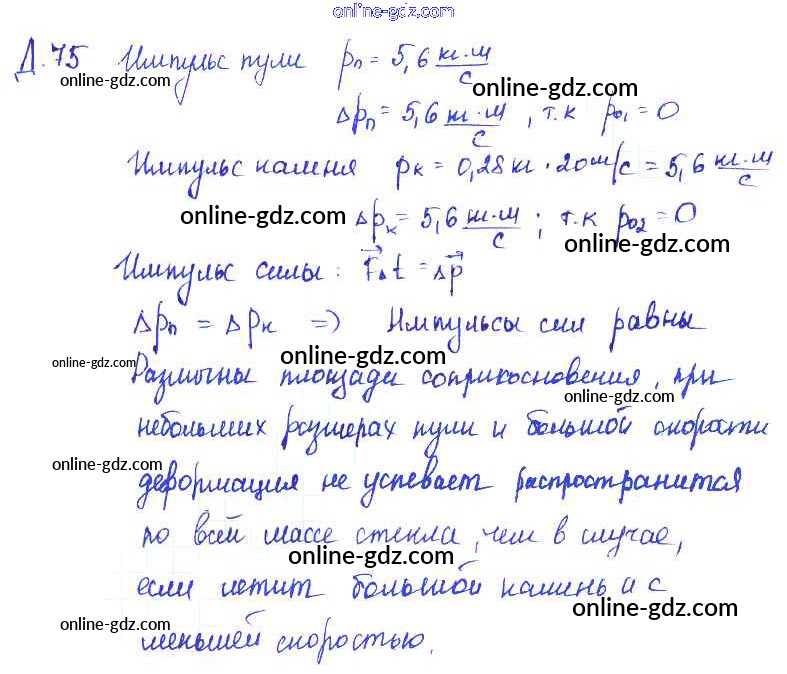 online-gdz.com
Д.75 Импульс пули pп = 5,6 кг·м/с
online-gdz.com online-gdz.com
Δpп = 5,6 кг·м/с, т.к p01 = 0
Импульс камня pк = 0,28кг · 20м/с = 5,6 кг·м/с
online-gdz.com Δpк = 5,6 кг·м/с; т.к p02 = 0
online-gdz.com
Импульс силы: F⃗Δt = Δp⃗
Δpп = Δpк => Импульсы сил равны
online-gdz.com online-gdz.com
Различны площади соприкосновения, при
online-gdz.com
небольших размерах пули и большой скорости
online-gdz.com
деформация не успевает распространится
по всей массе стекла, чем в случае,
online-gdz.com
если летит большой камень и с
online-gdz.com online-gdz.com
меньшей скоростью.